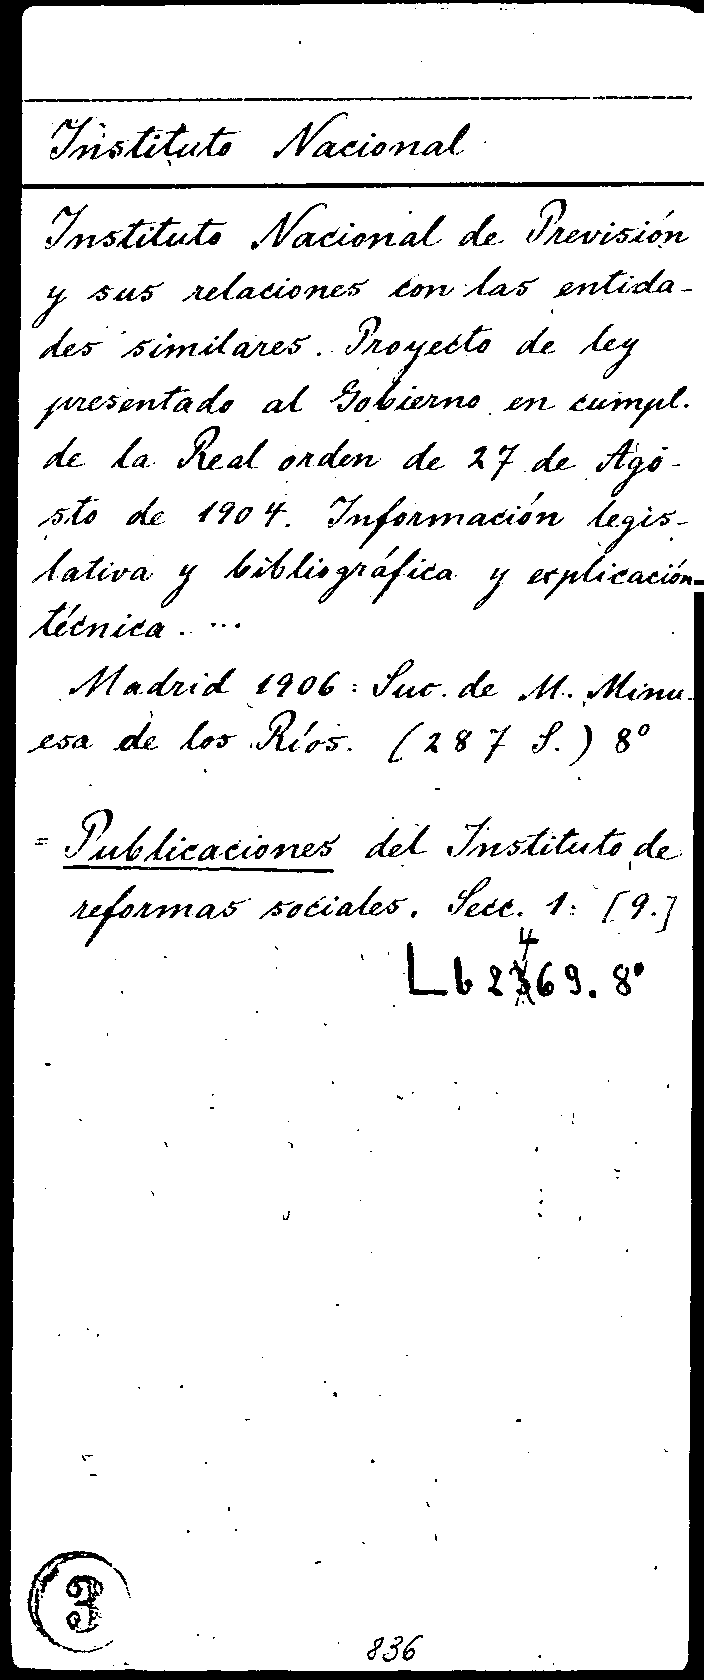 Instituto Nacional
Instituto Nacional de Previsión
y sus relaciones con las entida-
des similares. Proyecto de ley
presentado al Gobierno en cumpl.
de la Real orden de 27 de Ago-
sto de 1904. Información legis-
lativa y bibliográfica y explicación
técnica. ...
Madrid 1906: Suc. de M. Minu-
esa de los Ríos. (287 S.) 8°
= Publicaciones del Instituto de
reformas sociales. Secc. 1: [9.]
Lb 2469. 8°
3
836